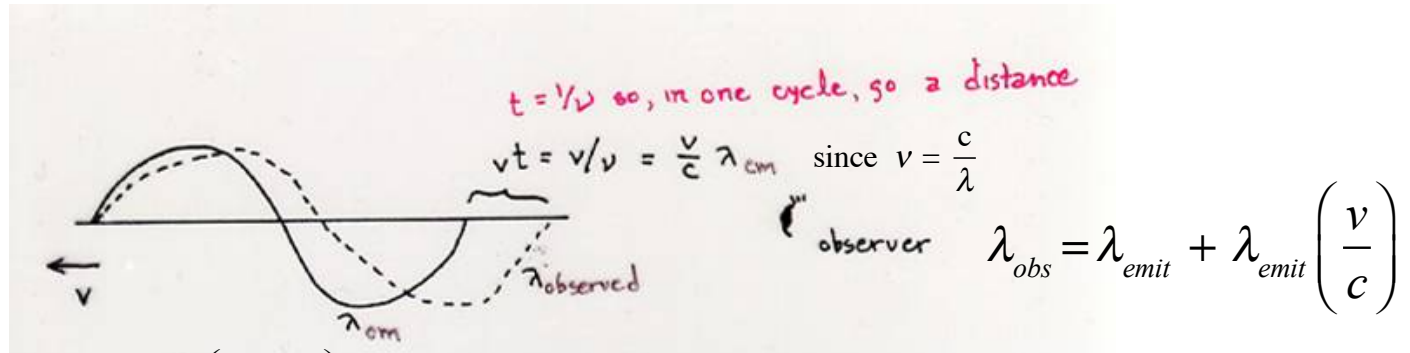 t = 1/ν so, in one cycle, go a distance
vt = v/ν = v/c λem since ν = c/λ
observer λobs = λemit + λemit (v/c)
λobserved
v
λem